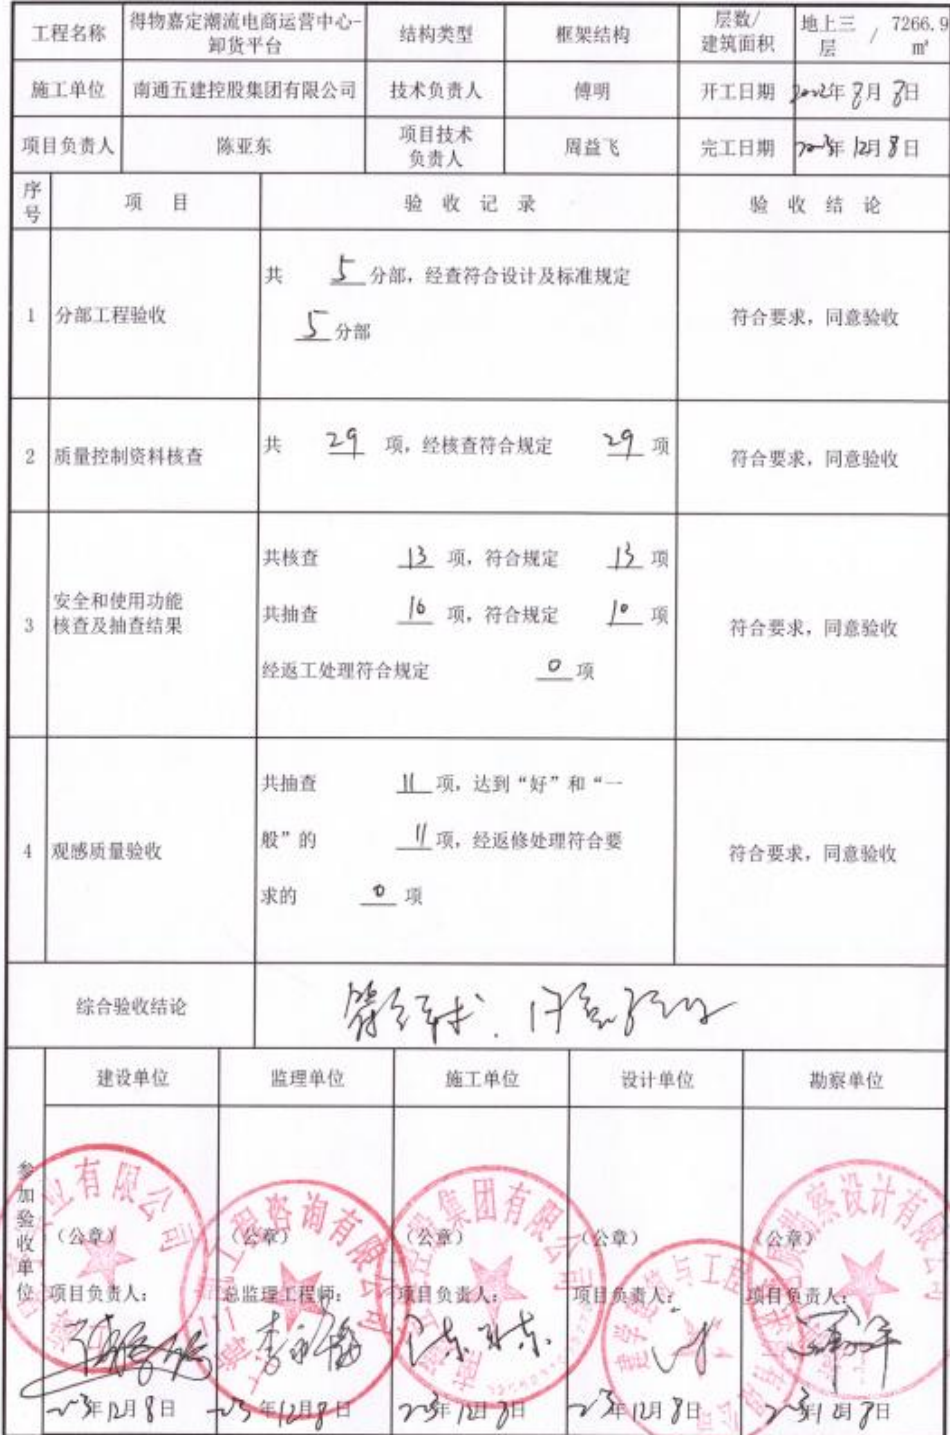 工程名称 得物嘉定潮流电商运营中心-卸货平台 结构类型 框架结构 层数/建筑面积 地上三层 / 7266.9㎡
施工单位 南通五建控股集团有限公司 技术负责人 傅明 开工日期 2022年8月8日
项目负责人 陈亚东 项目技术负责人 周益飞 完工日期 2023年12月8日
序号 项 目 验 收 记 录 验 收 结 论
1 分部工程验收 共 5 分部，经查符合设计及标准规定
5 分部
符合要求，同意验收
2 质量控制资料核查 共 29 项，经核查符合规定 29 项 符合要求，同意验收
3 安全和使用功能
核查及抽查结果
共核查 13 项，符合规定 13 项
共抽查 10 项，符合规定 10 项
经返工处理符合规定 0 项
符合要求，同意验收
4 观感质量验收
共抽查 11 项，达到“好”和“一
般”的 11 项，经返修处理符合要
求的 0 项
符合要求，同意验收
综合验收结论 符合要求、同意验收
参加验收单位
建设单位 监理单位 施工单位 设计单位 勘察单位
（公章） （公章） （公章） （公章） （公章）
项目负责人： 总监理工程师： 项目负责人： 项目负责人： 项目负责人：
2023年12月8日 2023年12月8日 2023年12月8日 2023年12月8日 2023年12月8日
业有限公司
工程咨询有限公司
集团有限公司
建学建筑与工程
勘察设计有